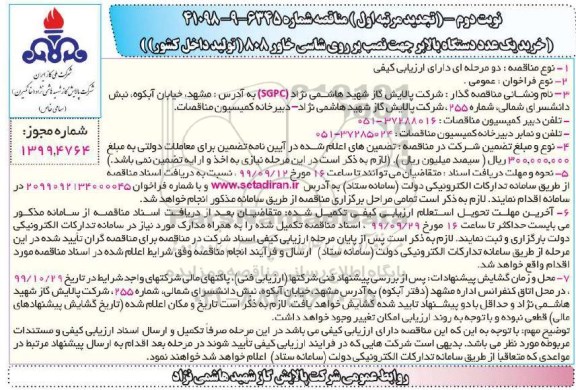 نوبت دوم - (تجدید مرتبه اول) مناقصه شماره ۶۳۴۵-۹-۴۱۰۹۸
((خرید یک عدد دستگاه بالابر جهت نصب بر روی شاسی خاور ۸۰۸ (تولید داخل کشور))
شرکت ملی گاز ایران
شرکت پالایش گاز شهید هاشمی نژاد (خانگیران)
(سهامی خاص)
شماره مجوز:
۱۳۹۹.۴۷۶۴
۱- نوع مناقصه : دو مرحله ای دارای ارزیابی کیفی
۲- نوع فراخوان : عمومی .
۳- نام ونشانی مناقصه گذار : شرکت پالایش گاز شهید هاشمی نژاد (SGPC) به آدرس : مشهد، خیابان آبکوه، نبش
دانشسرای شمالی، شماره ۲۵۵، شرکت پالایش گاز شهید هاشمی نژاد – دبیرخانه کمیسیون مناقصات.
- تلفن دبیر کمیسیون مناقصات : ۳۷۲۸۸۰۱۶-۰۵۱
- تلفن و نمابر دبیرخانه کمیسیون مناقصات : ۳۷۲۸۵۰۲۴-۰۵۱
۴- نوع و مبلغ تضمین شرکت در مناقصه : تضمین های اعلام شده در آیین نامه تضمین برای معاملات دولتی به مبلغ
۳۰۰,۰۰۰,۰۰۰ ریال ( سیصد میلیون ریال ) (لازم به ذکر است در این مرحله نیازی به اخذ و ارایه تضمین نمی باشد.)
۵- نحوه و مهلت دریافت اسناد : متقاضیان می توانند تا ساعت ۱۶ مورخ ۹۹/۰۹/۱۲ ، نسبت به دریافت اسناد مناقصه
از طریق سامانه تدارکات الکترونیکی دولت (سامانه ستاد) به آدرس www.setadiran.ir و با شماره فراخوان ۲۰۹۹۰۹۲۱۳۴۰۰۰۰۴۵ در
سامانه اقدام نمایند. لازم به ذکر است تمامی مراحل برگزاری مناقصه از طریق سامانه مذکور انجام خواهد شد.
۶- آخرین مهلت تحویل استعلام ارزیابی کیفی تکمیل شده: متقاضیان بعد از دریافت اسناد مناقصه از سامانه مذکور
می بایست حداکثر تا ساعت ۱۶ مورخ ۹۹/۰۹/۲۹ ، اسناد مناقصه تکمیل شده را به همراه مدارک مورد نیاز در سامانه تدارکات الکترونیکی
دولت بارگزاری و ثبت نمایند. لازم به ذکر است پس از پایان مرحله ارزیابی کیفی اسناد شرکت در مناقصه برای مناقصه گران تایید شده در این
مرحله از طریق سامانه تدارکات الکترونیکی دولت (سامانه ستاد) ارسال و فرآیند انجام مناقصه وفق شرایط اعلام شده در اسناد مناقصه مورد
اقدام واقع خواهد شد.
۷- محل و زمان گشایش پیشنهادات : پس از بررسی پیشنهاد فنی شرکتها (ارزیابی فنی)، پاکتهای مالی شرکتهای واجد شرایط در تاریخ ۹۹/۱۰/۲۹
، در محل اتاق کنفرانس اداره مشهد (دفتر آبکوه) به آدرس مشهد، خیابان آبکوه، نبش دانشسرای شمالی، شماره ۲۵۵، شرکت پالایش گاز شهید
هاشمی نژاد و حداقل با دو پیشنهاد تایید شده گشایش خواهد یافت. لازم به ذکر است تاریخ و مکان اعلام شده (تاریخ گشایش پیشنهادهای
مالی) قطعی نبوده و با توجه به روند ارزیابی امکان تغییر وجود خواهد داشت.
توضیح مهم: با توجه به این که این مناقصه دارای ارزیابی کیفی می باشد در این مرحله صرفا تکمیل و ارسال اسناد ارزیابی کیفی و مستندات
مربوطه مورد نظر می باشد. بدیهی است شرکت هایی که در فرایند ارزیابی کیفی تایید شوند در مرحله بعد اقدام به ارسال پیشنهاد مرتبط در
مواعدی که متعاقبا از طریق سامانه تدارکات الکترونیکی دولت (سامانه ستاد) اعلام خواهد شد خواهند نمود.
روابط عمومی شرکت پالایش گاز شهید هاشمی نژاد